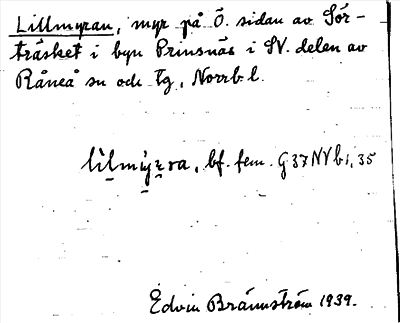 Lillmyran, myr på Ö. sidan av Sör-
träsket i byn Prinsnäs i SV. delen av
Råneå sn och tg, Norrb. l.
lìlmýra, bf. fem. G37NVb1,35
Edvin Brännström 1939.